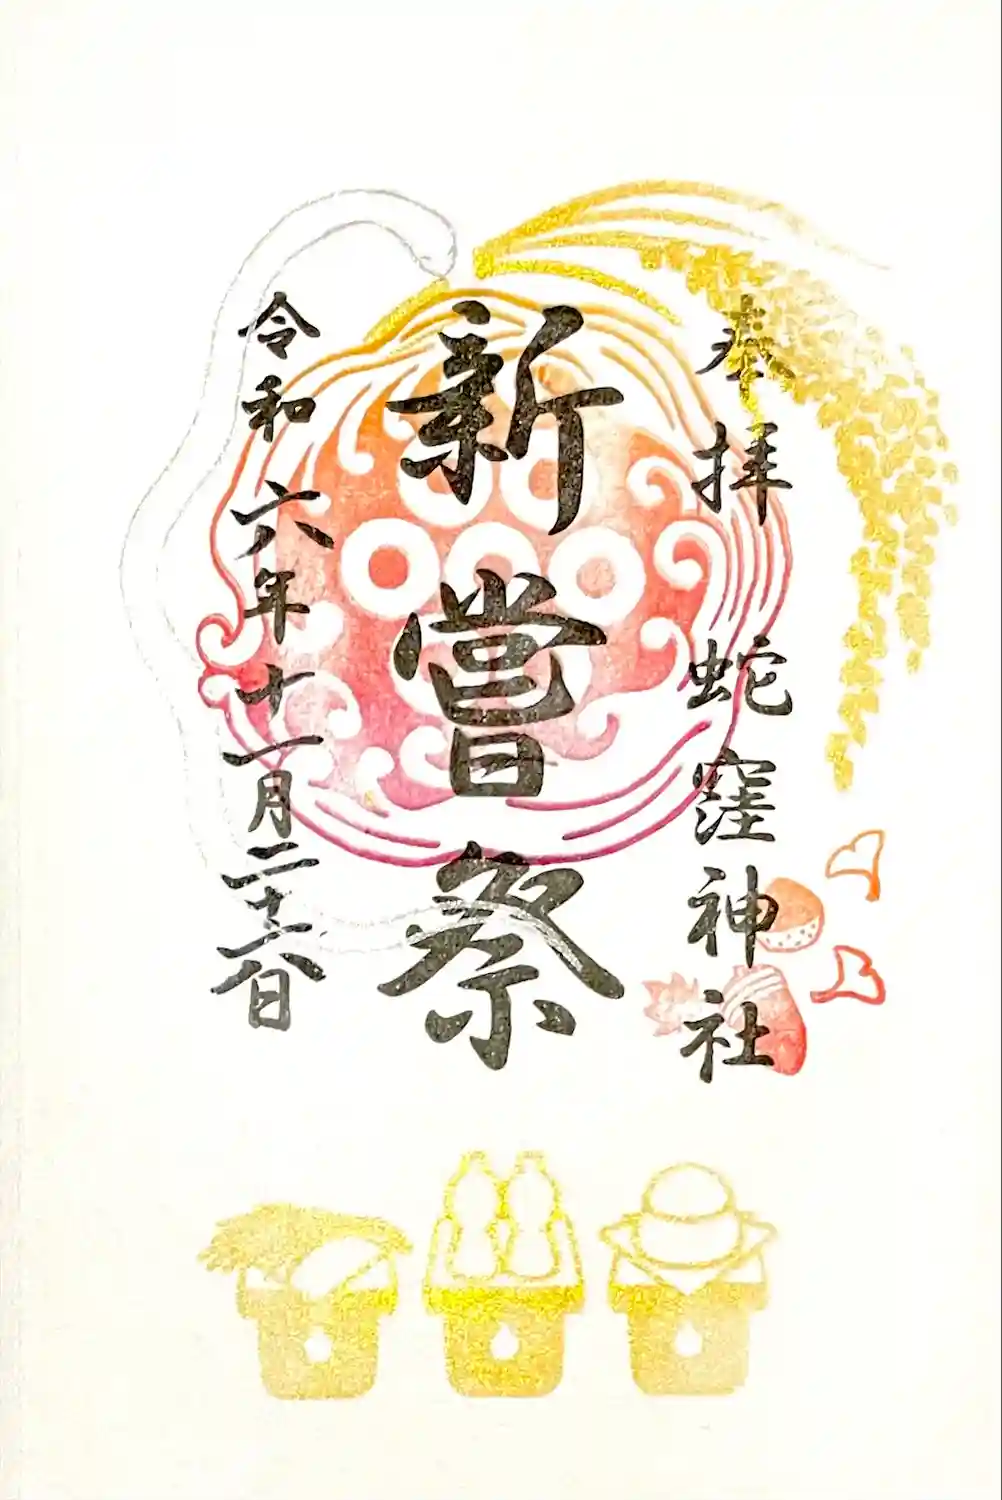 奉拝 蛇窪神社
新嘗祭
令和六年十一月二十六日